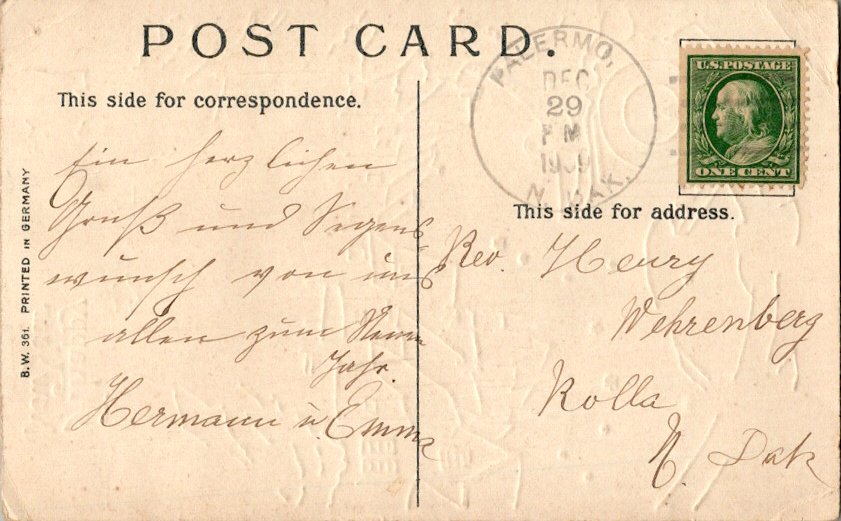 POST CARD.
This side for correspondence.
Ein herzlichen
Gruß und Segens-
wunsch von uns
allen zum Neuen
Jahr.
Hermann u. Emma
B.W. 361. PRINTED IN GERMANY
PALERMO,
DEC
29
PM
1909
N. DAK.
U.S. POSTAGE
ONE CENT
This side for address.
Rev. Henry
Wehrenberg
Rolla
N. Dak